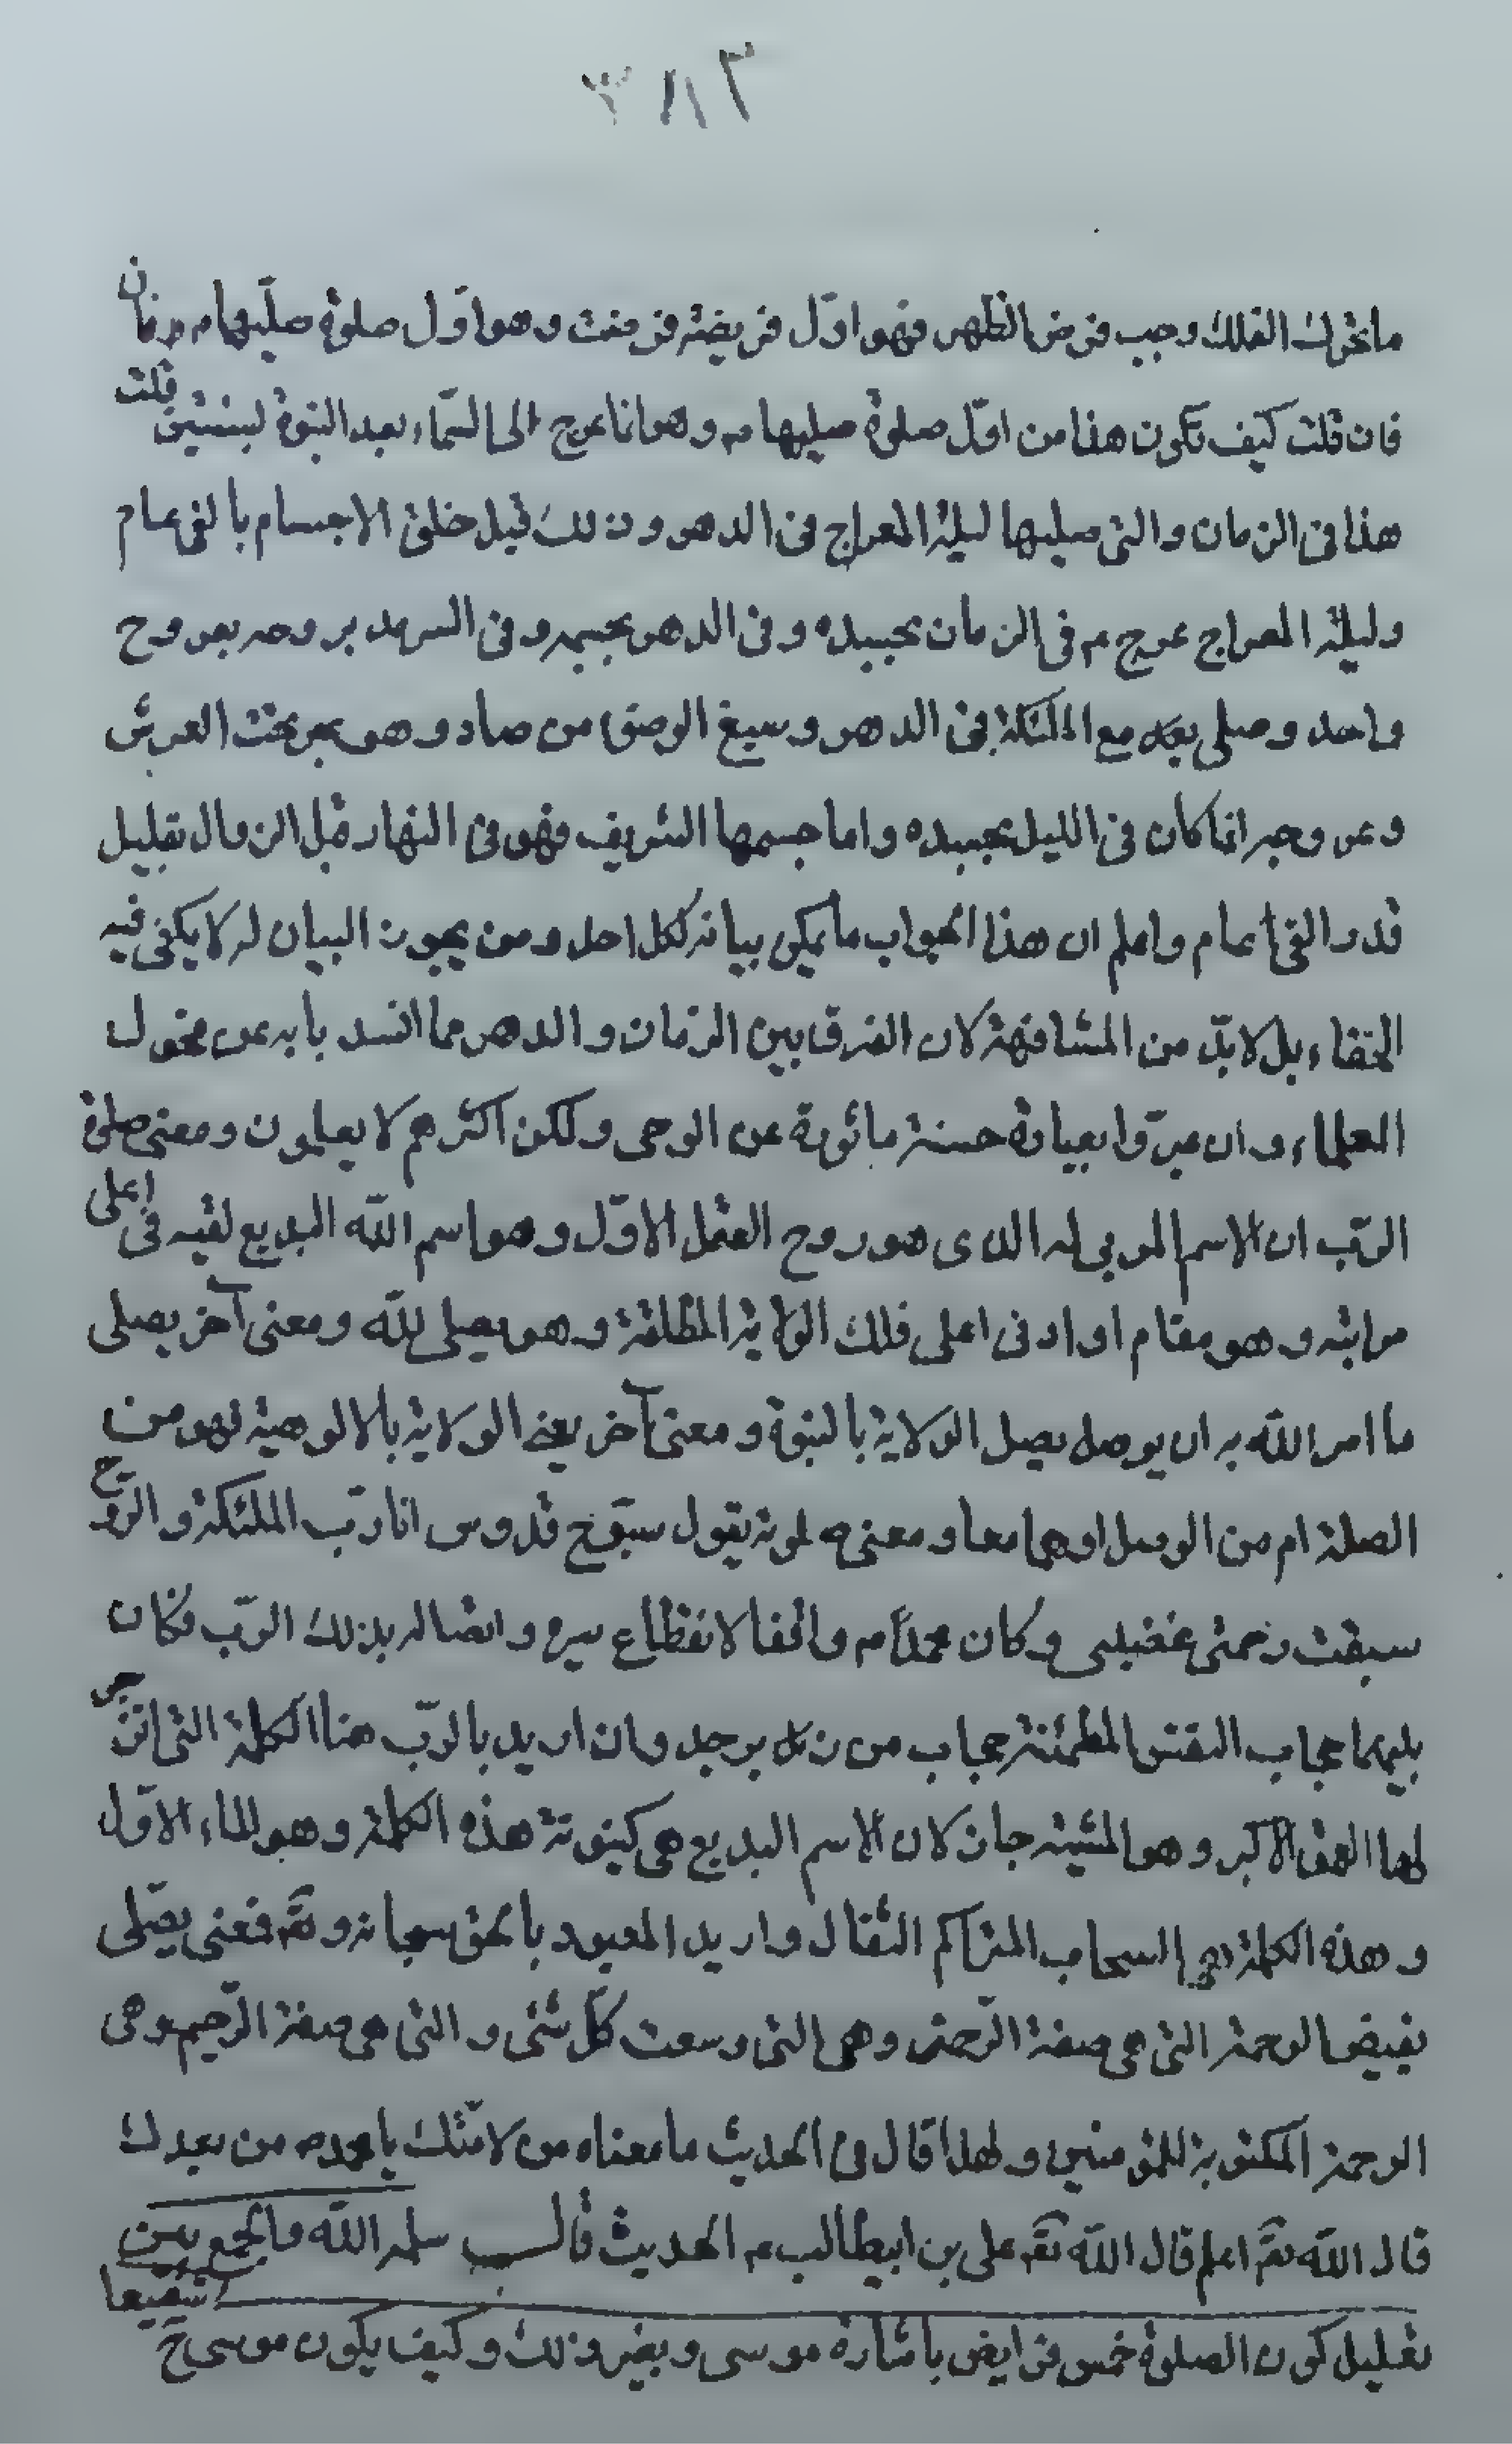 ما تحرك الفلك وجب فرض الظهر فهو اول فريضة فرضت وهو اول صلوة صليها م فان
فان قلت كيف تكون هذا من اول صلوة صليها م وهو انما عرج الى السماء بعد النبوة لسنتين قلت
هذا في الزمان والتي صليها ليلة المعراج في الدهر وذلك قبل خلق الاجسام بالفي عام
وليلة المعراج عرج م في الزمان بجسده وفي الدهر بجسمه وفي السرمد بروحه بعروج
واحد وصلى بعده مع الملئكة في الدهر وسبغ الوضوء من صاد وهو بحر تحت العرش
وعروجه انما كان في الليل بجسده واما جسمها الشريف فهو في النهار قبل الزوال بقليل
قدر الفي عام واعلم ان هذا الجواب ما يمكن بيانه لكل احد ومن يجوز البيان له لا يكفي فيه
الخفاء بل لا بدّ من المشافهة لان الفرق بين الزمان والدهر مما انسد بابه عن عقول
العلماء وان عبّروا بعبارة حسنة مأثورة عن الوحي ولكن اكثرهم لا يعلمون ومعنى صلوة
الربّ ان الاسم المربي له الذي هو روح العقل الاوّل وهو اسم الله البديع لقيه في اعلى
مراتبه وهو مقام او ادنى اعلى فلك الولاية المطلقة وهو يصلي لله ومعنى آخر يصلي
ما امر الله به ان يوصل يصل الولاية بالنبوة ومعنى آخر يعني الولاية بالالوهية فهو من
الصلة ام من الوصل او هما معا ومعنى صلوته يقول سبّوح قدوس انا ربّ الملئكة والروح
سبقت رحمتي غضبي وكان محمد م واقفا لانقطاع سيره واتصاله بذلك الربّ فكان
بينهما حجاب النفس المطمئنة حجاب من زبرجد وان اريد بالربّ هنا الكلمة التي انزجر
لها العمق الاكبر وهو المشية جاز لان الاسم البديع هي كينونة هذه الكلمة وهو الماء الاوّل
وهذه الكلمة هي السحاب المتراكم الثقال واريد المعبود بالحق سبحانه وتع فمعنى يصلّى
يفيض الرحمة التي هي صفة الرّحمن وهي التي وسعت كلّ شئ والتي هي صفة الرّحيم وهي
الرحمة المكتوبة للمؤمنين ولهذا قال في الحديث ما معناه من لامّتك يا محمد من بعدك
قال الله تع اعلم قال الله تع علي بن ابيطالب م الحديث قال سلمه الله وما الجمع بين
تعليل كون الصلوة خمس فرايض باشارة موسى وبغير ذلك وكيف يكون موسى ح شفيعا